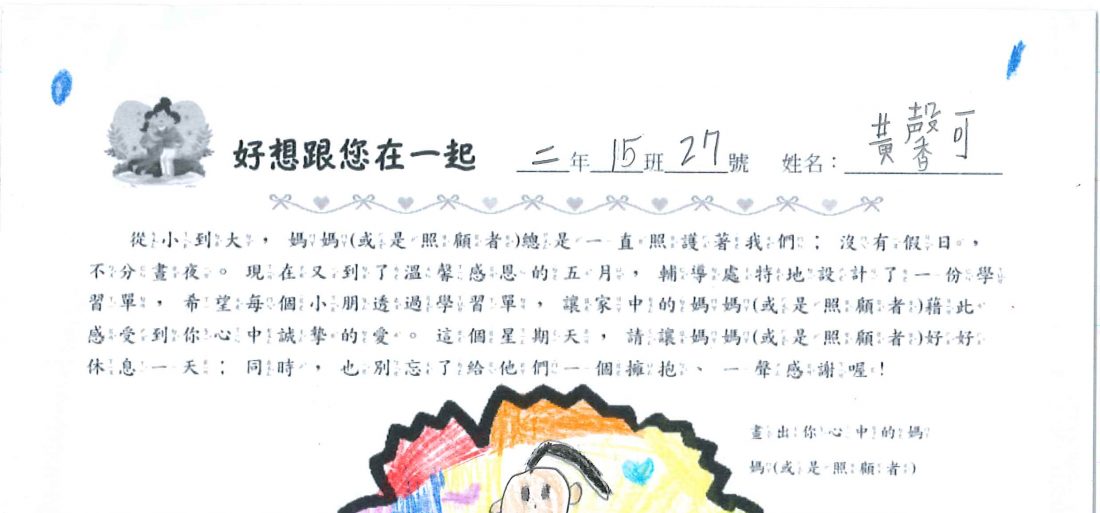 好想跟您在一起 二年15班27號 姓名：黃馨可
從小到大，媽媽(或是照顧者)總是一直照護著我們；沒有假日，
不分晝夜。現在又到了溫馨感恩的五月，輔導處特地設計了一份學
習單，希望每個小朋透過學習單，讓家中的媽媽(或是照顧者)藉此
感受到你心中誠摯的愛。這個星期天，請讓媽媽(或是照顧者)好好
休息一天；同時，也別忘了給他們一個擁抱、一聲感謝喔！
畫出你心中的媽
媽(或是照顧者)